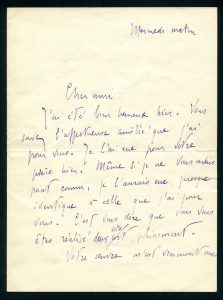 Mercredi matin
Cher ami
J'ai été bien heureuse hier. Vous
savez l'affectueuse amitié que j'ai
pour vous. Je l'ai eue pour votre
père hier. Même si je ne vous avais
point connu, je l'aurais eue, presque
identique à celle que j'ai pour
vous. C'est vous dire que vous vous
êtes réalisé pleinement.
Votre œuvre m'est vraiment une